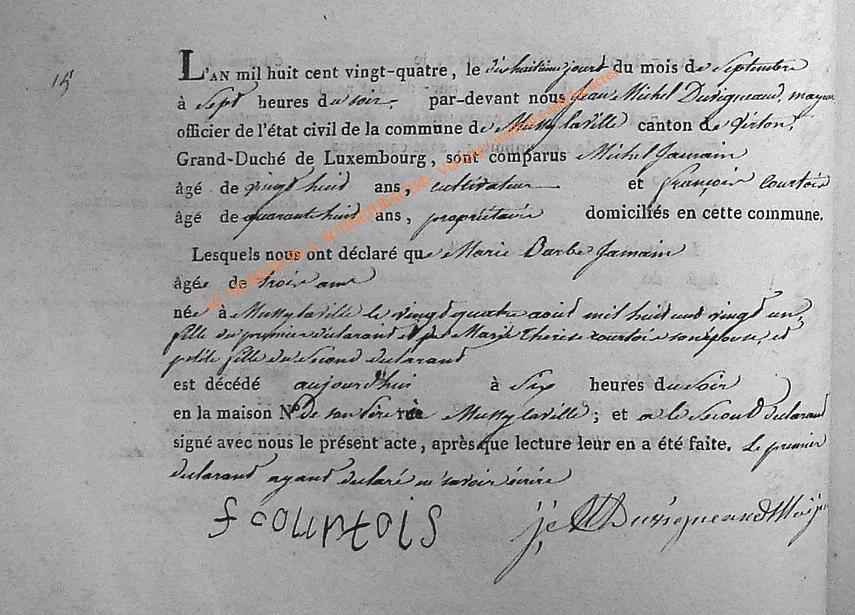 15
L'AN mil huit cent vingt-quatre, le dix huitième jour du mois de Septembre
à Sept heures du soir, par-devant nous Jean Michel Duvigneaud, mayeur
officier de l'état civil de la commune de Mussy laville canton de Virton,
Grand-Duché de Luxembourg, sont comparus Michel Jamain
âgé de vingt huid ans, cultivateur et françois Courtois
âgé de quarant huid ans, propriétaire domiciliés en cette commune.
Lesquels nous ont déclaré que Marie Barbe Jamain
âgée de trois ans
née à Mussy laville le vingd quatre aoud mil huid cend vingd un,
fille du premier declarand et de Marie Therese courtois son epouse, et
petite fille du Second declarand
est décédé aujourd'hui à Six heures du Soir
en la maison N.º de son père rüe Mussy laville; et a le Second declarand
signé avec nous le présent acte, après que lecture leur en a été faite. Le premier
declarand ayand declaré ne savoir écrire
f courtois
j, M Duvigneaud Maij